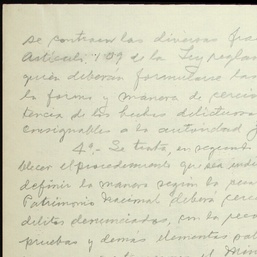 se contraen las diversas frac
Artículo 129 de la Ley regla
quién deberán formularse las
la forma y manera de percib
tencia de los hechos delictuoso
consignables a la autoridad j
4º.- Se trata, en seguida
blecer el procedimiento que sea
definir la manera según la
Patrimonio Nacional deberá
delitos denunciados, en la
pruebas y demás elementos
el